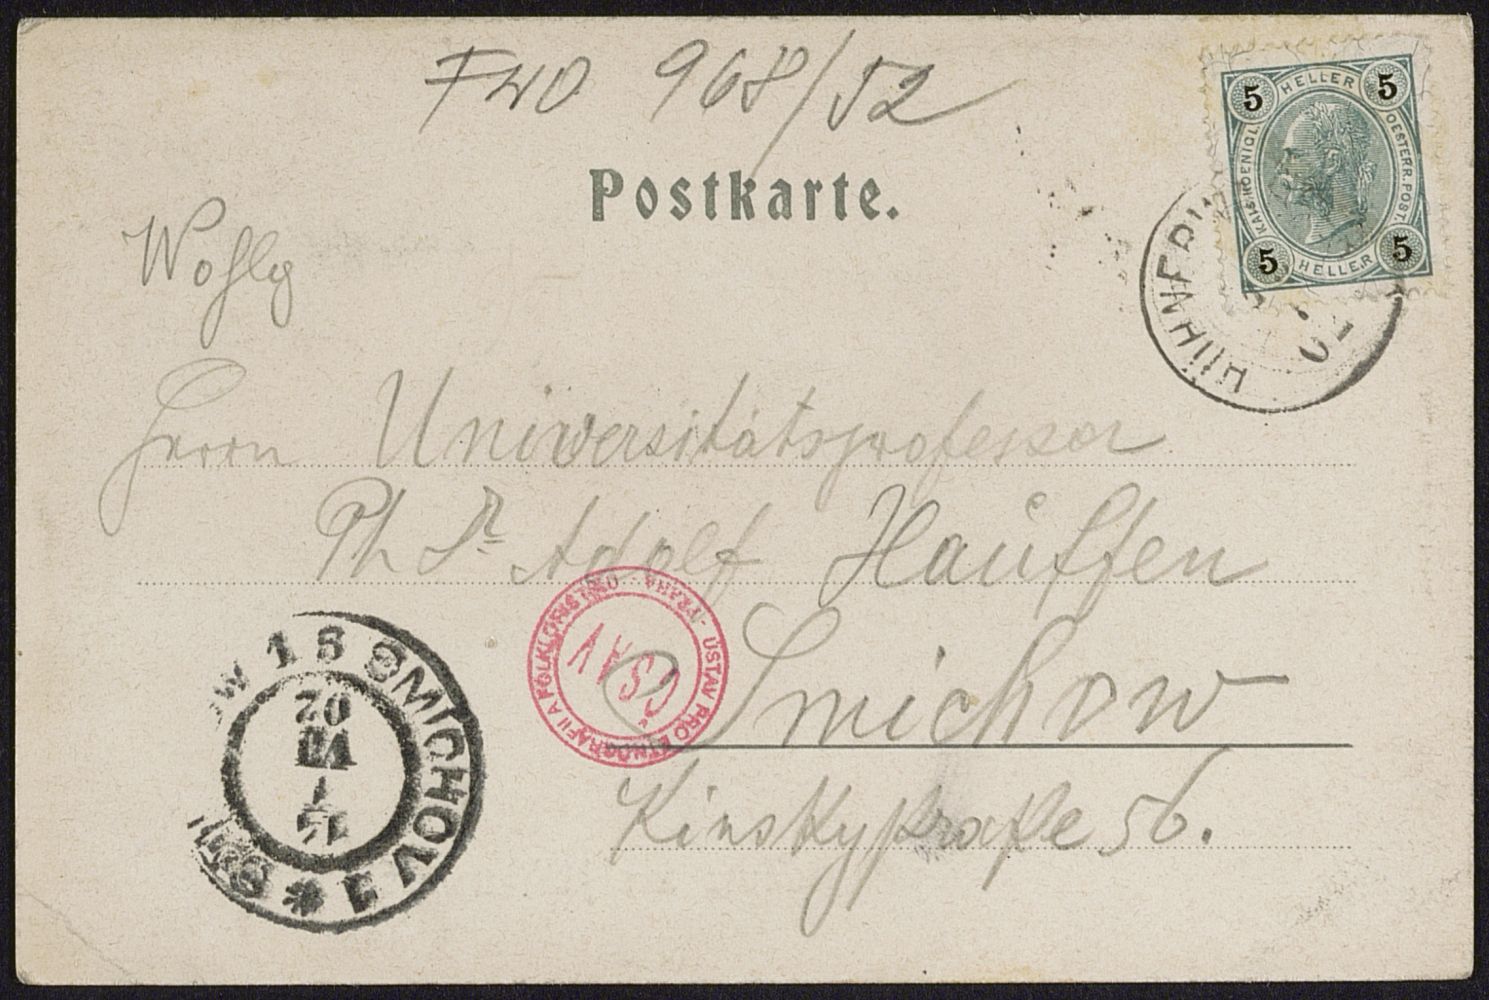 FWD 968/52
Postkarte.
5 HELLER 5
KAIS. KOENIGL. OESTERR. POST.
5 HELLER 5
HÜHNER
02
Wohlg
Herrn Universitätsprofessor
Ph Dr Adolf Hauffen
Smichow
Kinskystraße 56.
ÚSTAV PRO ETNOGRAFII A FOLKLORISTIKU · PRAHA ·
ČSAV
SMICHOV 1
02
VII
1